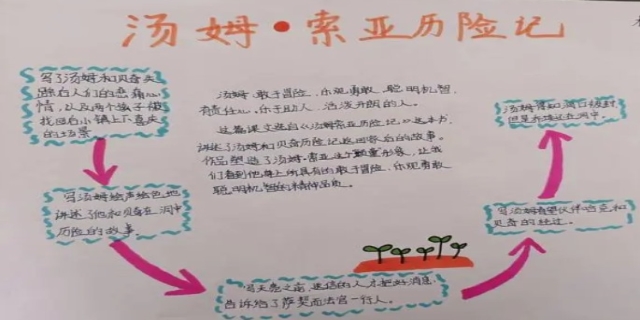 汤姆·索亚历险记
写了汤姆和贝奇失
踪后人们的悲痛心
情,以及两个孩子被
找回后小镇上人喜庆
的场景
写汤姆绘声绘色地
讲述了他和贝奇在洞中
历险的故事
写天亮之前,送信的人才把好消息
告诉给了萨契尔法官一行人。
写汤姆看望伙伴哈克和
贝奇的经过。
汤姆得知洞口被封
但是乔埃还在洞中。
汤姆:敢于冒险、乐观勇敢、聪明机智、
有责任心,乐于助人、活泼开朗的人。
这篇课文选自《汤姆索亚历险记》这本书,
讲述了汤姆和贝奇历险记返回家后的故事。
作品塑造了汤姆·索亚这个形象,让我
们看到他身上所具有的敢于冒险、乐观勇敢
聪明机智的精神品质。